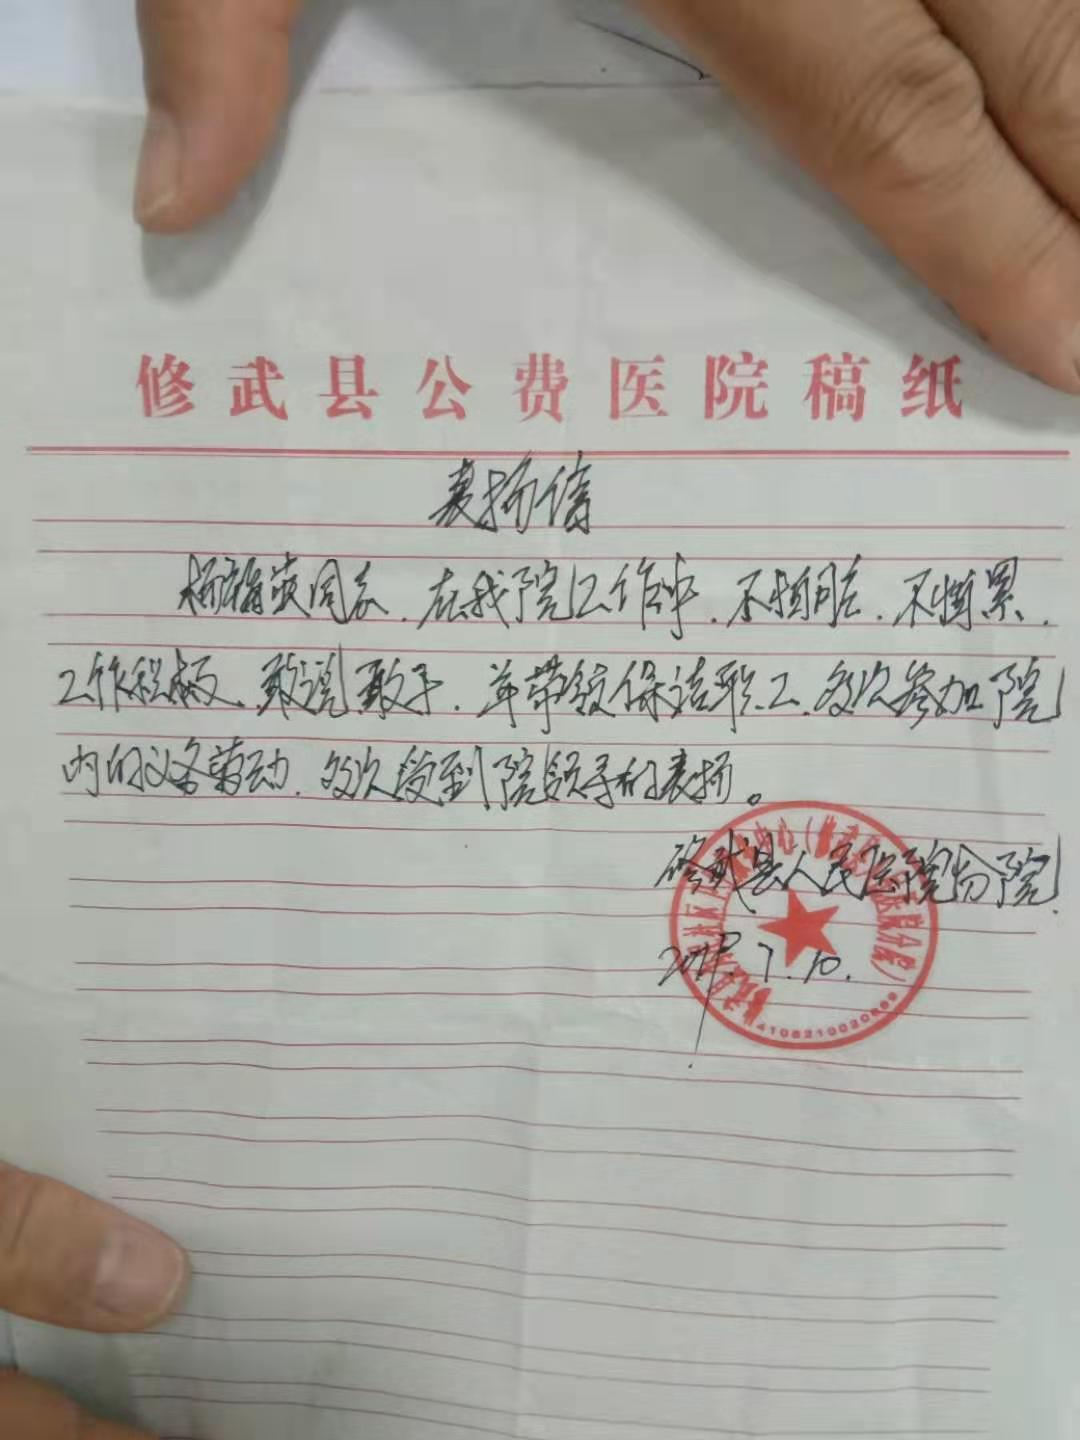 修武县公费医院稿纸
表扬信
杨 同志,在我院工作中,不怕脏,不怕累,
工作积极,敢说敢干,并带领保洁职工,多次参加院
内的义务劳动,多次受到院领导的表扬。
修武县人民医院分院
7.10.